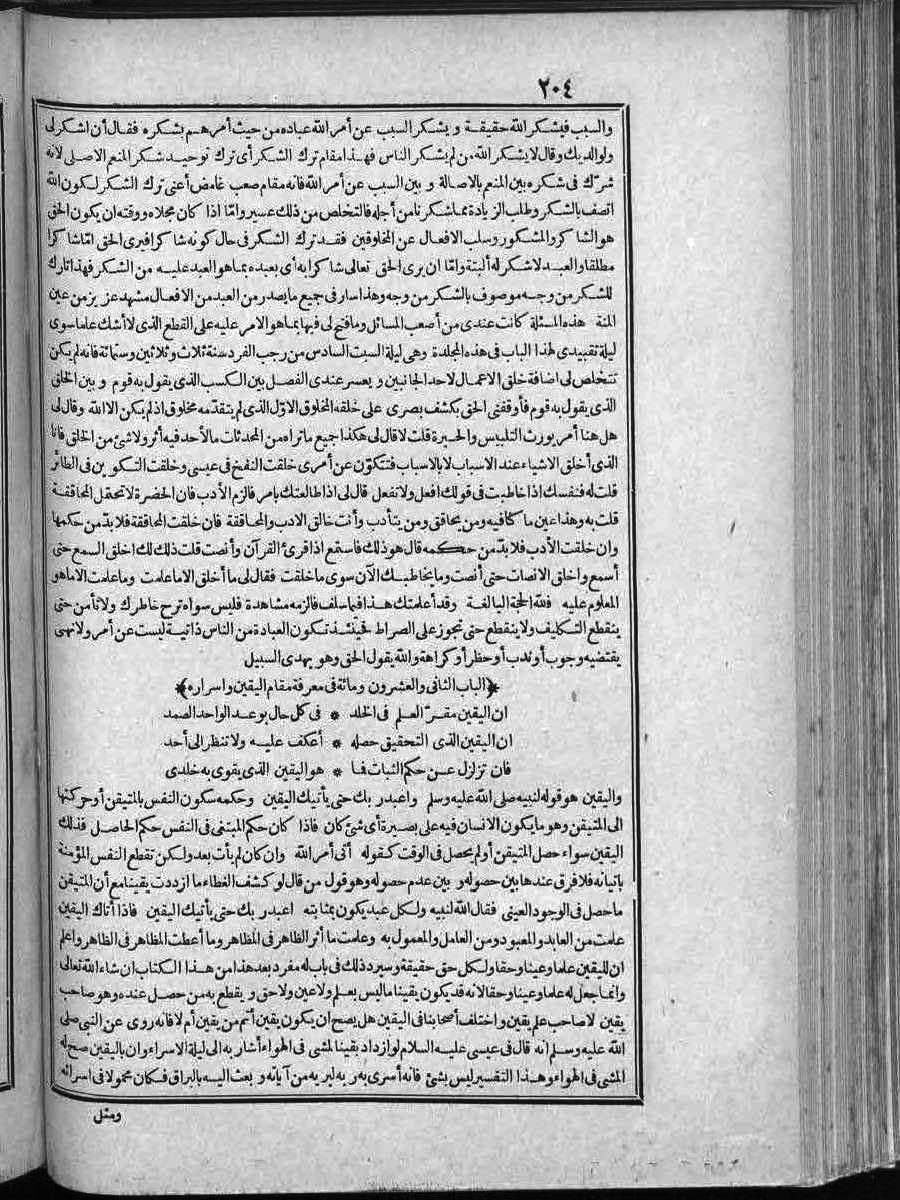 ٢٠٤
والسبب فيشكر الله حقيقة ويشكر السبب عن أمر الله عباده من حيث أمرهم بشكره فقال أن اشكر لى
ولوالديك وقال لا يشكر الله من لم يشكر الناس فهذا مقام ترك الشكر أى ترك توحيد شكر المنعم الاصلى لانه
شرّك فى شكره بين المنعم بالاصالة وبين السبب عن أمر الله فانه مقام صعب غامض أعنى ترك الشكر لكون الله
اتصف بالشكر وطلب الزيادة مما شكرنا من أجله فالتخلص من ذلك عسير وامّا اذا كان مجلاه ووقته ان يكون الحق
هو الشاكر والمشكور وسلب الافعال عن المخلوقين فقد ترك الشكر فى حال كونه شاكرا فيرى الحق امّا شاكرا
مطلقا والعبد لا شكر له ألبتة وامّا ان يرى الحق تعالى شاكرا به أى بعبده بما هو العبد عليه من الشكر فهذا تارك
للشكر من وجه موصوف بالشكر من وجه وهذا سار فى جميع ما يصدر من العبد من الافعال مشهد عزيز من عين
المنة هذه المسئلة كانت عندى من أصعب المسائل وما فتح لى فيها بما هو الامر عليه على القطع الذى لا أشك علما سوى
ليلة تقييدى لهذا الباب فى هذه المجلدة وهى ليلة السبت السادس من رجب الفرد سنة ثلاث وثلاثين وستمائة فانه لم يكن
تتخلص لى اضافة خلق الاعمال لاحد الجانبين ويعسر عندى الفصل بين الكسب الذى يقول به قوم وبين الخلق
الذى يقول به قوم فأوقفنى الحق بكشف بصرى على خلقه المخلوق الاوّل الذى لم يتقدّمه مخلوق اذ لم يكن الا الله وقال لى
هل هنا أمر يورث التلبيس والحيرة قلت لا قال لى هكذا جميع ما تراه من المحدثات ما لأحد فيه أثر ولا شئ من الخلق فانا
الذى أخلق الاشياء عند الاسباب لا بالاسباب فتتكوّن عن أمرى خلقت النفخ فى عيسى وخلقت التكوين فى الطائر
قلت له فنفسك اذا خاطبت فى قولك افعل ولا تفعل قال لى اذا طالعتك بامر فالزم الأدب فان الحضرة لا تحتمل المحاققة
قلت به وهذا عين ما كنا فيه ومن يحاقق ومن يتأدب وأنت خالق الادب والمحاققة فان خلقت المحاققة فلا بدّ من حكمها
وان خلقت الأدب فلا بدّ من حكمه قال هو ذلك فاستمع اذا قرئ القرآن وأنصت قلت ذلك لك اخلق السمع حتى
أسمع واخلق الانصات حتى أنصت وما يخاطبك الآن سوى ما خلقت فقال لى ما أخلق الا ما علمت وما علمت الا ما هو
المعلوم عليه فلله الحجة البالغة وقد أعلمتك هذا فيما سلف فالزمه مشاهدة فليس سواه ترح خاطرك ولا تأمن حتى
ينقطع التكليف ولا ينقطع حتى تجوز على الصراط فحينئذ تكون العبادة من الناس ذاتية ليست عن أمر ولا نهى
يقتضيه وجوب أو ندب أو حظر أو كراهة والله يقول الحق وهو يهدى السبيل
﴿الباب الثانى والعشرون ومائة فى معرفة مقام اليقين واسراره﴾
ان اليقين مقرّ العلم فى الخلد * فى كل حال بوعد الواحد الصمد
ان اليقين الذى التحقيق حصله * أعكف عليه ولا تنظر الى أحد
فان تزلزل عن حكم الثبات فما * هو اليقين الذى يقوى به خلدى
واليقين هو قوله لنبيه صلى الله عليه وسلم واعبد ربك حتى يأتيك اليقين وحكمه سكون النفس بالمتيقن أو حركتها
الى المتيقن وهو ما يكون الانسان فيه على بصيرة أى شئ كان فاذا كان حكم المبتغى فى النفس حكم الحاصل فذلك
اليقين سواء حصل المتيقن أو لم يحصل فى الوقت كقوله أتى أمر الله وان كان لم يأت بعد ولكن تقطع النفس المؤمنة
باتيانه فلا فرق عندها بين حصوله وبين عدم حصوله وهو قول من قال لو كشف الغطاء ما ازددت يقينا مع أن المتيقن
ما حصل فى الوجود العينى فقال الله لنبيه ولكل عبد يكون بمثابته اعبد ربك حتى يأتيك اليقين فاذا أتاك اليقين
علمت من العابد والمعبود ومن العامل والمعمول به وعلمت ما أثر الظاهر فى المظاهر وما أعطت المظاهر فى الظاهر واعلم
ان لليقين علما وعينا وحقا ولكل حق حقيقة وسيرد ذلك فى باب له مفرد بعد هذا من هذا الكتاب ان شاء الله تعالى
وانما جعل له علما وعينا وحقا لانه قد يكون يقينا ما ليس بعلم ولا عين ولا حق ويقطع به من حصل عنده وهو صاحب
يقين لا صاحب علم يقين واختلف أصحابنا فى اليقين هل يصح ان يكون يقين أتم من يقين أم لا فانه روى عن النبى صلى
الله عليه وسلم انه قال فى عيسى عليه السلام لو ازداد يقينا لمشى فى الهواء أشار به الى ليلة الاسراء وان باليقين صح له
المشى فى الهواء وهذا التفسير ليس بشئ فانه أسرى به ربه ليريه من آياته وبعث اليه بالبراق فكان محمولا فى اسرائه
ومثل